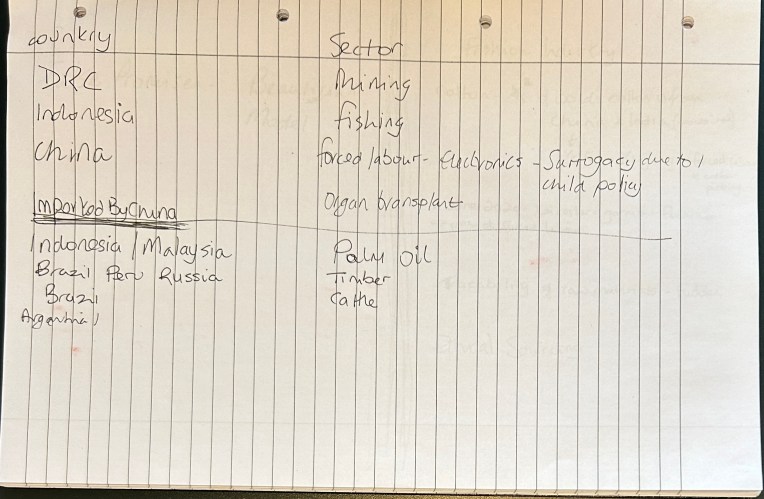 country Sector
DRC Mining
Indonesia fishing
China forced labour - Electronics - Surrogacy due to 1
child policy
Organ transplant
Imported By China
Indonesia / Malaysia Palm Oil
Brazil Peru Russia Timber
Brazil Cattle
Argentina